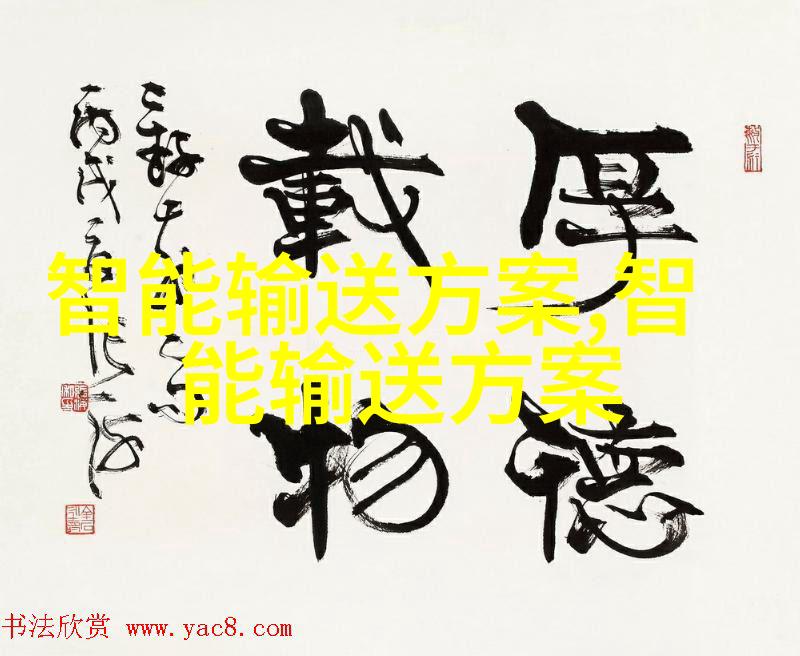 厚德
載物
丙戌
智能输送方案,智
能输送方案
书法欣赏 www.yac8.com